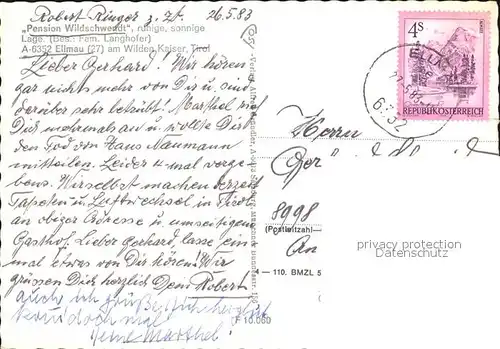 Robert Ringer z. Zt. 26.5.83
"Pension Wildschwendt", ruhige, sonnige
Lage. (Bes.: Fam. Langhofer)
A-6352 Ellmau (27) am Wilden Kaiser, Tirol
Lieber Gerhard! Wir hören
gar nichts mehr von Dir u sind
darüber sehr betrübt! Marthel rief
Dich mehrmals an u wollte Dir
den Tod von Hans Naumann
mitteilen. Leider 4 mal verge-
bens. Wir selbst machen derzeit
Tapeten u Luftwechsel in Tirol
an obiger Adresse u umseitigem
Gasthof. Lieber Gerhard, lasse ein
mal etwas von Dir hören! Wir
grüssen Dich herzlich Dein Robert
auch ich grüße Dich herzlich
komm doch mal
Deine Marthel!
4S
REPUBLIK ÖSTERREICH
6352
Herrn
Ger
8998
(Postleitzahl)
An
privacy protection
Datenschutz
— 110. BMZL 5
F 10.060